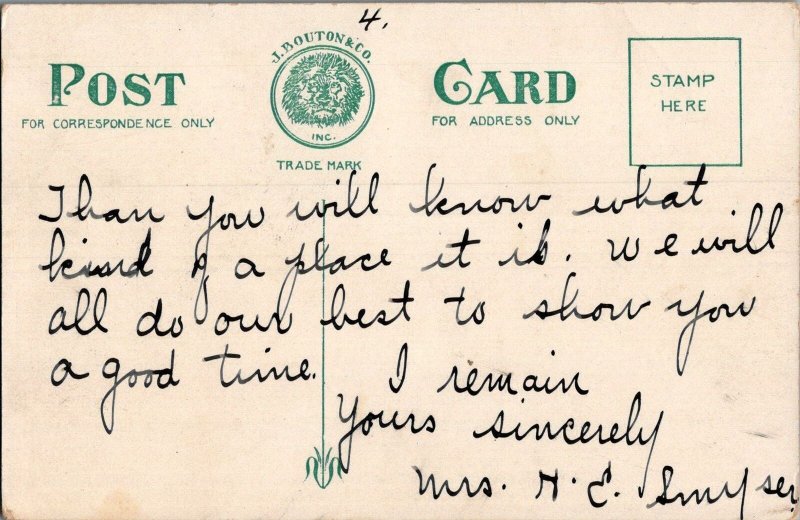 4.
POST CARD
J. BOUTON & CO.
INC.
TRADE MARK
FOR CORRESPONDENCE ONLY
FOR ADDRESS ONLY
STAMP
HERE
Than you will know what
kind of a place it is. We will
all do our best to show you
a good time. I remain
Yours sincerely
Mrs. H. E. Smyser